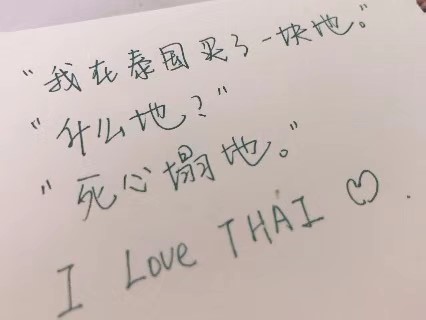 "我在泰国买了一块地。"
"什么地?"
"死心塌地。"
I Love THAI ♡.